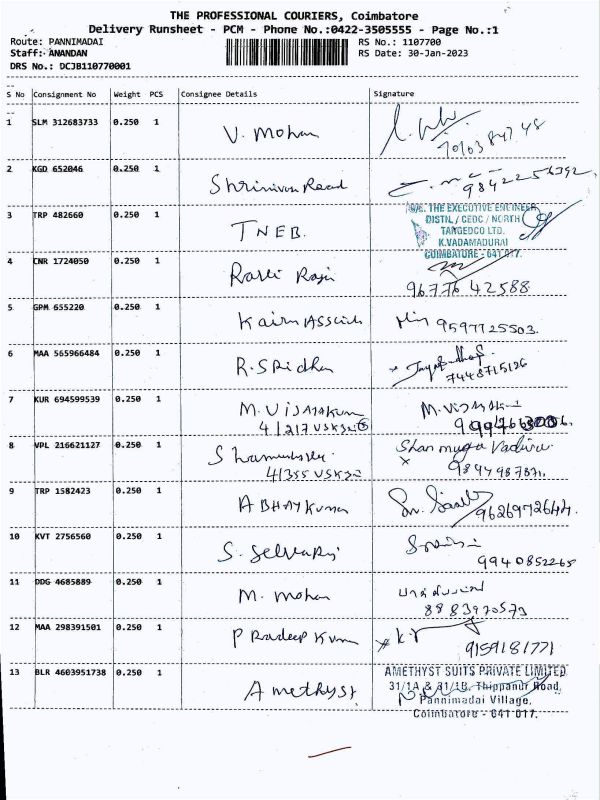 THE PROFESSIONAL COURIERS, Coimbatore
Delivery Runsheet - PCM - Phone No.:0422-3505555 - Page No.:1
Route: PANNIMADAI
RS No.: 1107700
Staff: ANANDAN
RS Date: 30-Jan-2023
DRS No.: DCJB110770001
S No Consignment No Weight PCS Consignee Details Signature
1 SLM 312683733 0.250 1 V. Mohan
2 KGD 652046 0.250 1 Shrinivas Road
3 TRP 482660 0.250 1 TNEB.
THE EXECUTIVE ENGINEER
DISTN, / CEDC / NORTH
TANGEDCO LTD.
K.VADAMADURAI
COIMBATORE - 641 017.
4 CNR 1724050 0.250 1
96776 42588
5 GPM 655220 0.250 1
9597725503.
6 MAA 565966484 0.250 1 R. Sridhar
7448715126
7 KUR 694599539 0.250 1 M. Vijayakum
4/217 VSK
8 VPL 216621127 0.250 1
4/355 VSK
Shanmuga
9 TRP 1582423 0.250 1 ABHAY Kumar
9626972644
10 KVT 2756560 0.250 1 S. Selvaraj
9940852265
11 DDG 4685889 0.250 1 M. Mohan
8883970573
12 MAA 298391501 0.250 1 Pradeep Kumar
9159181771
13 BLR 4603951738 0.250 1 Amethyst
AMETHYST SUITS PRIVATE LIMITED
31/1A & 31/1B, Thippanur Road,
Pannimadai Village,
Coimbatore - 641 017.